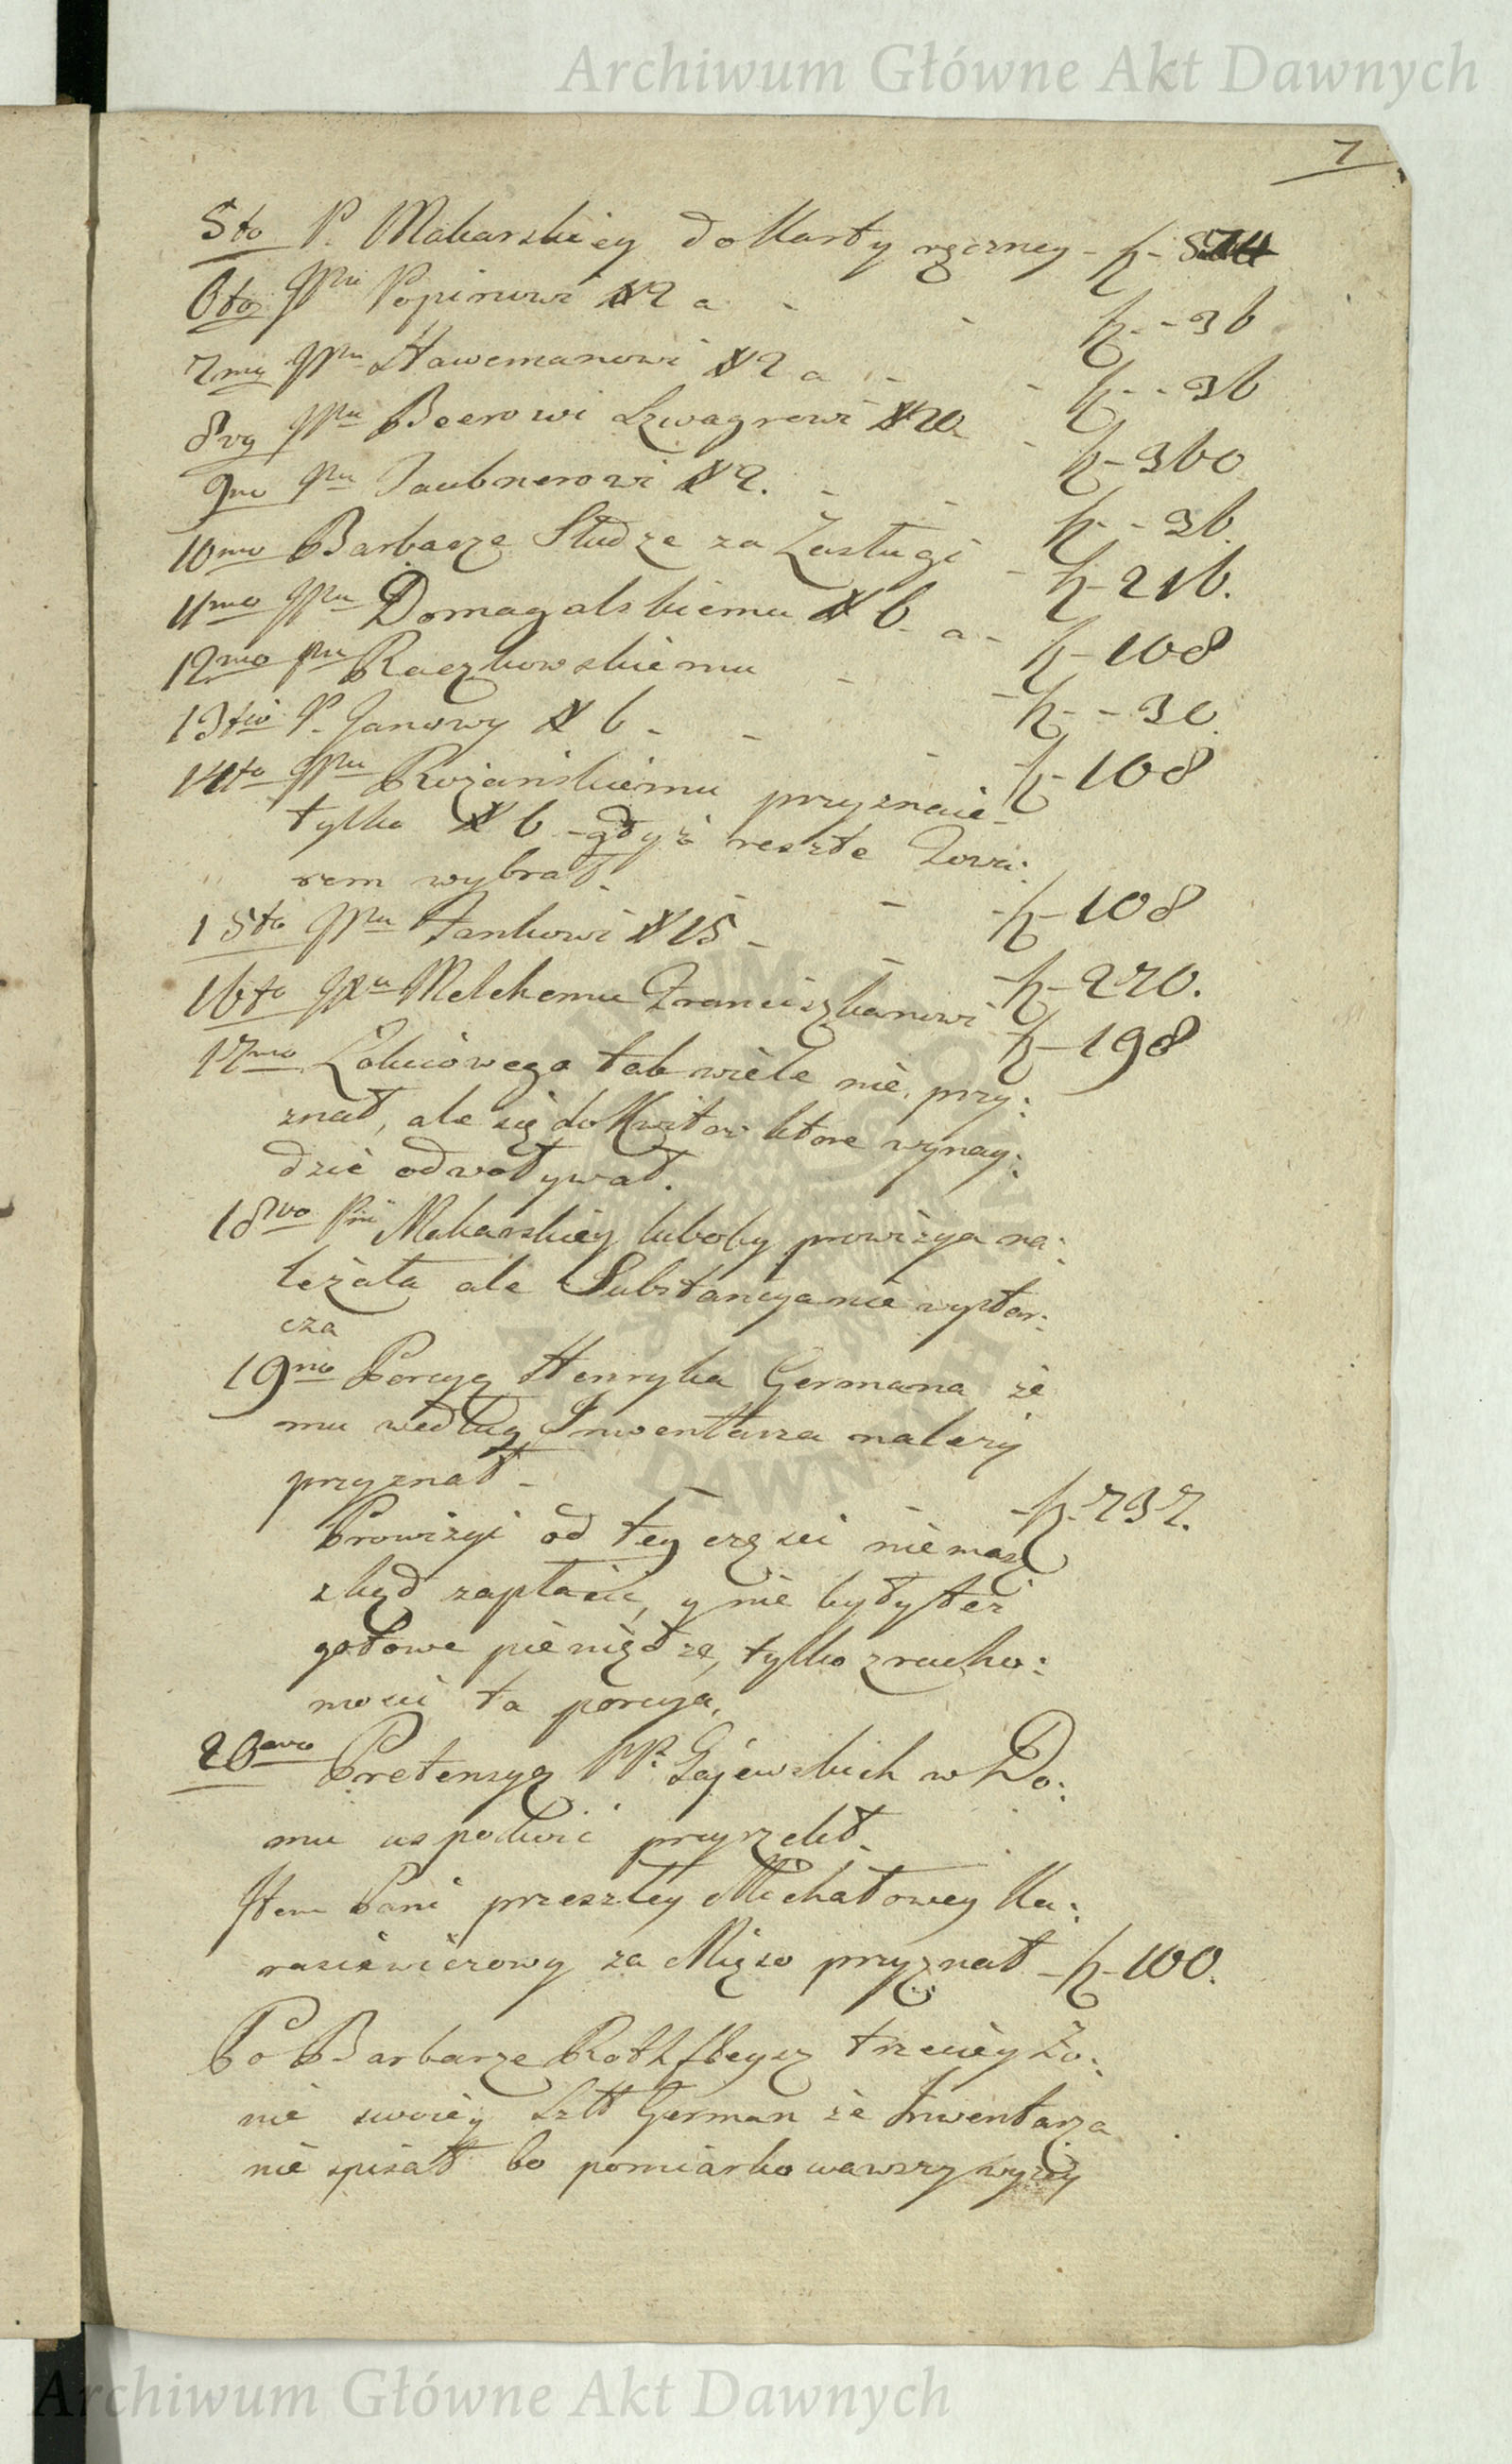 Archiwum Główne Akt Dawnych
7
5to P. Makarskiey do Karty ręczney - f - 
6to JPnu Popinowi # 2 a - - f - - 36
7mo JPnu Hawemanowi # 2 a - - f - - 36
8vo JPnu Beerowi Szwagrowi # 20 - f - 360
9no Pnu Taubnerowi # 2. - - f - - 36.
10mo Barbarze Słudze za Zasługi - f - 216.
11mo JPnu Domagalskiemu # 6 - a - f - 108
12mo Pnu Raczkowskiemu - - f - - 30.
13tio P. Janowy # 6 - - - f - 108
14to JPnu Rożańskiemu przyznaie
tylko # 6 - gdyż reszte Towa:
rem wybrał. - - f - 108
15to JPnu Jankowi # 15 - - f - 270.
16to JPnu Melchemu Franciszkanowi - f - 198
17mo Łokciowego tak wiele nie przy:
znał, ale się do Kwitow ktore wynay:
dzie odwoływał.
18vo Pni Makarskiey luboby prowizya na:
leżała ale Substancya nie wystar:
cza
19no Porcyą Henryka Germana że
mu według Inwentarza należy
przyznał - - - f - 737.
Prowizyi od tey części nie masz
zkąd zapłacić, y nie były też
gotowe pieniądze, tylko z rucho:
mości ta porcya.
20mo Pretensyą PP. Gajewskich w Do:
mu uspokoić przyrzekł.
Item Pani przeszłey Michałowey Ka:
rasiewiczowy za Mięso przyznał - f - 100.
Po Barbarze trzeciey Żo:
nie swoiey German że Inwentarza
nie spisał bo pomiarkowawszy wyzey
Archiwum Główne Akt Dawnych